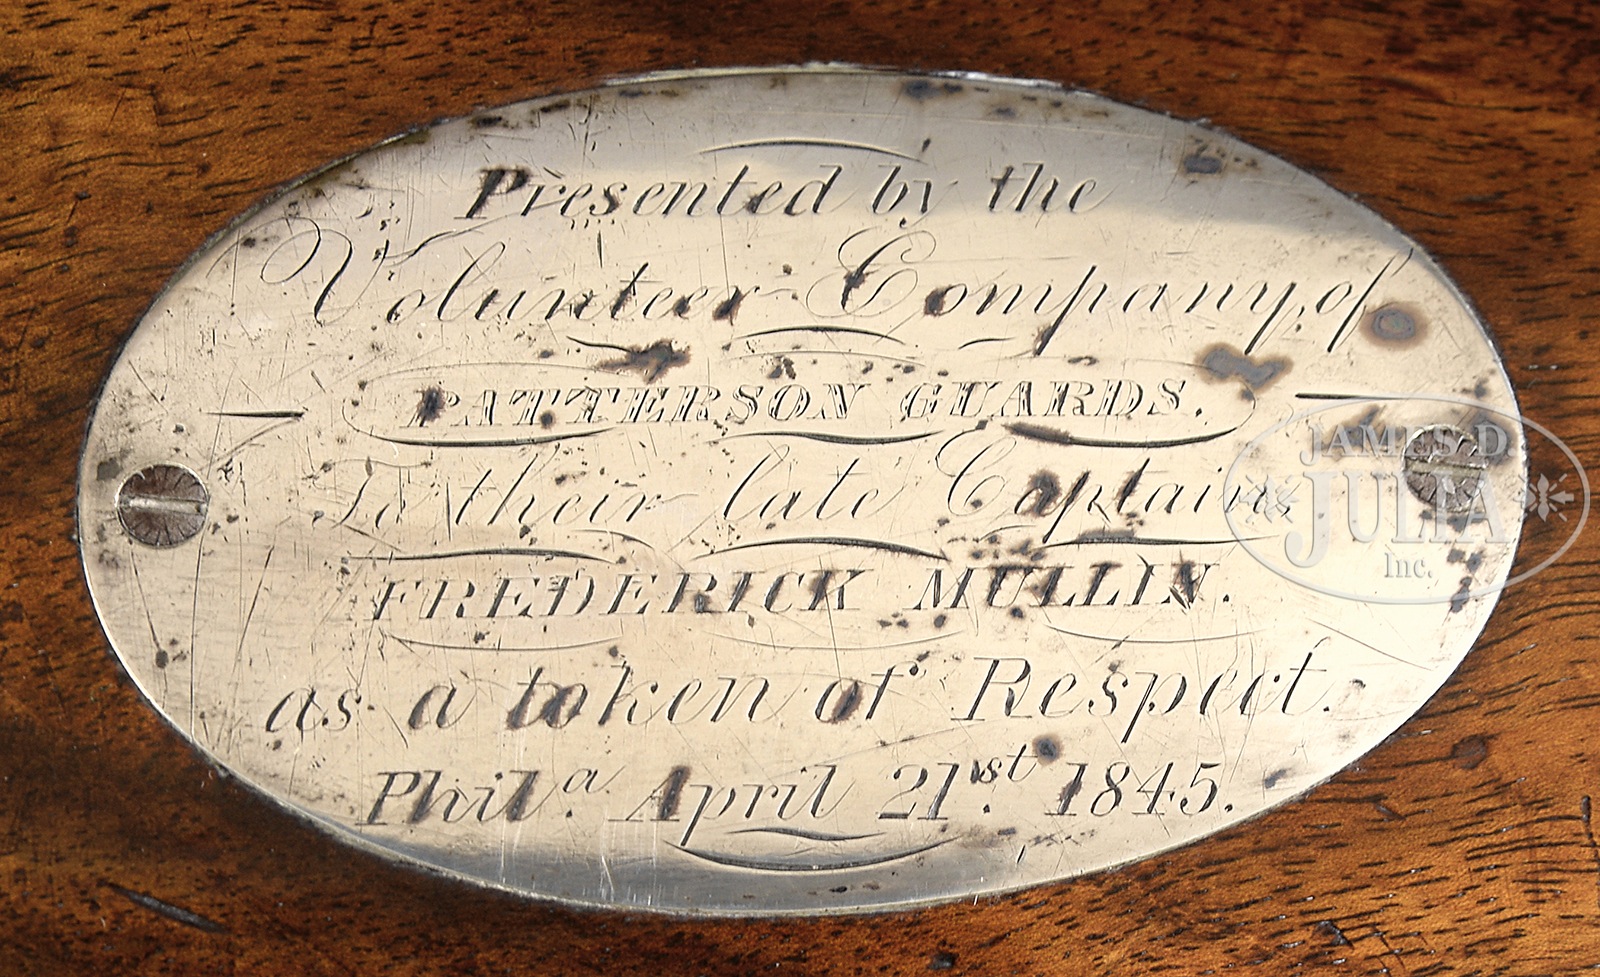 Presented by the
Volunteer Company, of
PATTERSON GUARDS.
To their late Captain,
FREDERICK MULLIN.
as a token of Respect.
Phil.ª April 21.st 1845.
JAMES D.
JULIA
Inc.